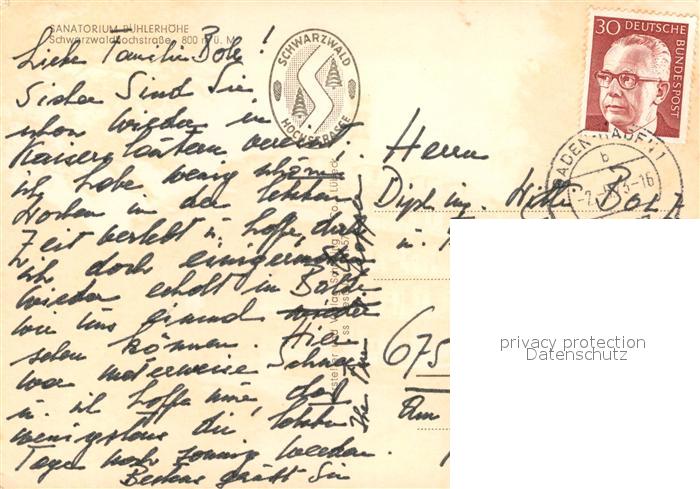 SANATORIUM BÜHLERHÖHE
Schwarzwaldhochstraße, 800 m ü. M.
SCHWARZWALD
HOCHSTRASSE
30 DEUTSCHE
BUNDESPOST
BADEN-BADEN 1
b
Liebe Familie Bolz!
Sicher sind Sie
schon wieder in
Kaiserslautern vereint!
ich habe wenig schöne
Wochen in der letzten
Zeit verlebt u. hoffe, daß
ich doch einigermaßen
wieder erholt im Bälde
wir uns einmal wieder
sehen können. Hier
war Schnee
u. ich hoffe nur daß
wenigstens die letzten
Tage noch sonnig werden.
Bestens grüßt Sie
Ihr
Herrn
Dipl. ing. Bolz
u.
675
Am
privacy protection
Datenschutz